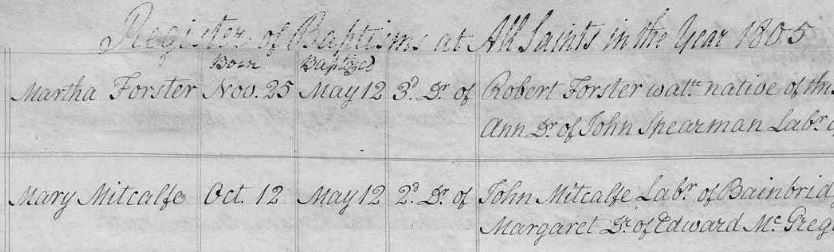 Register of Baptisms at All Saints in the Year 1805
Born Baptized
Martha Forster Nov. 25 May 12 3d. Dr. of Robert Forster native of this
Ann Dr. of John Spearman Labr. of
Mary Mitcalfe Oct. 12 May 12 2d. Dr. of John Mitcalfe Labr. of Bainbrid
Margaret Dr. of Edward Mc. Greg